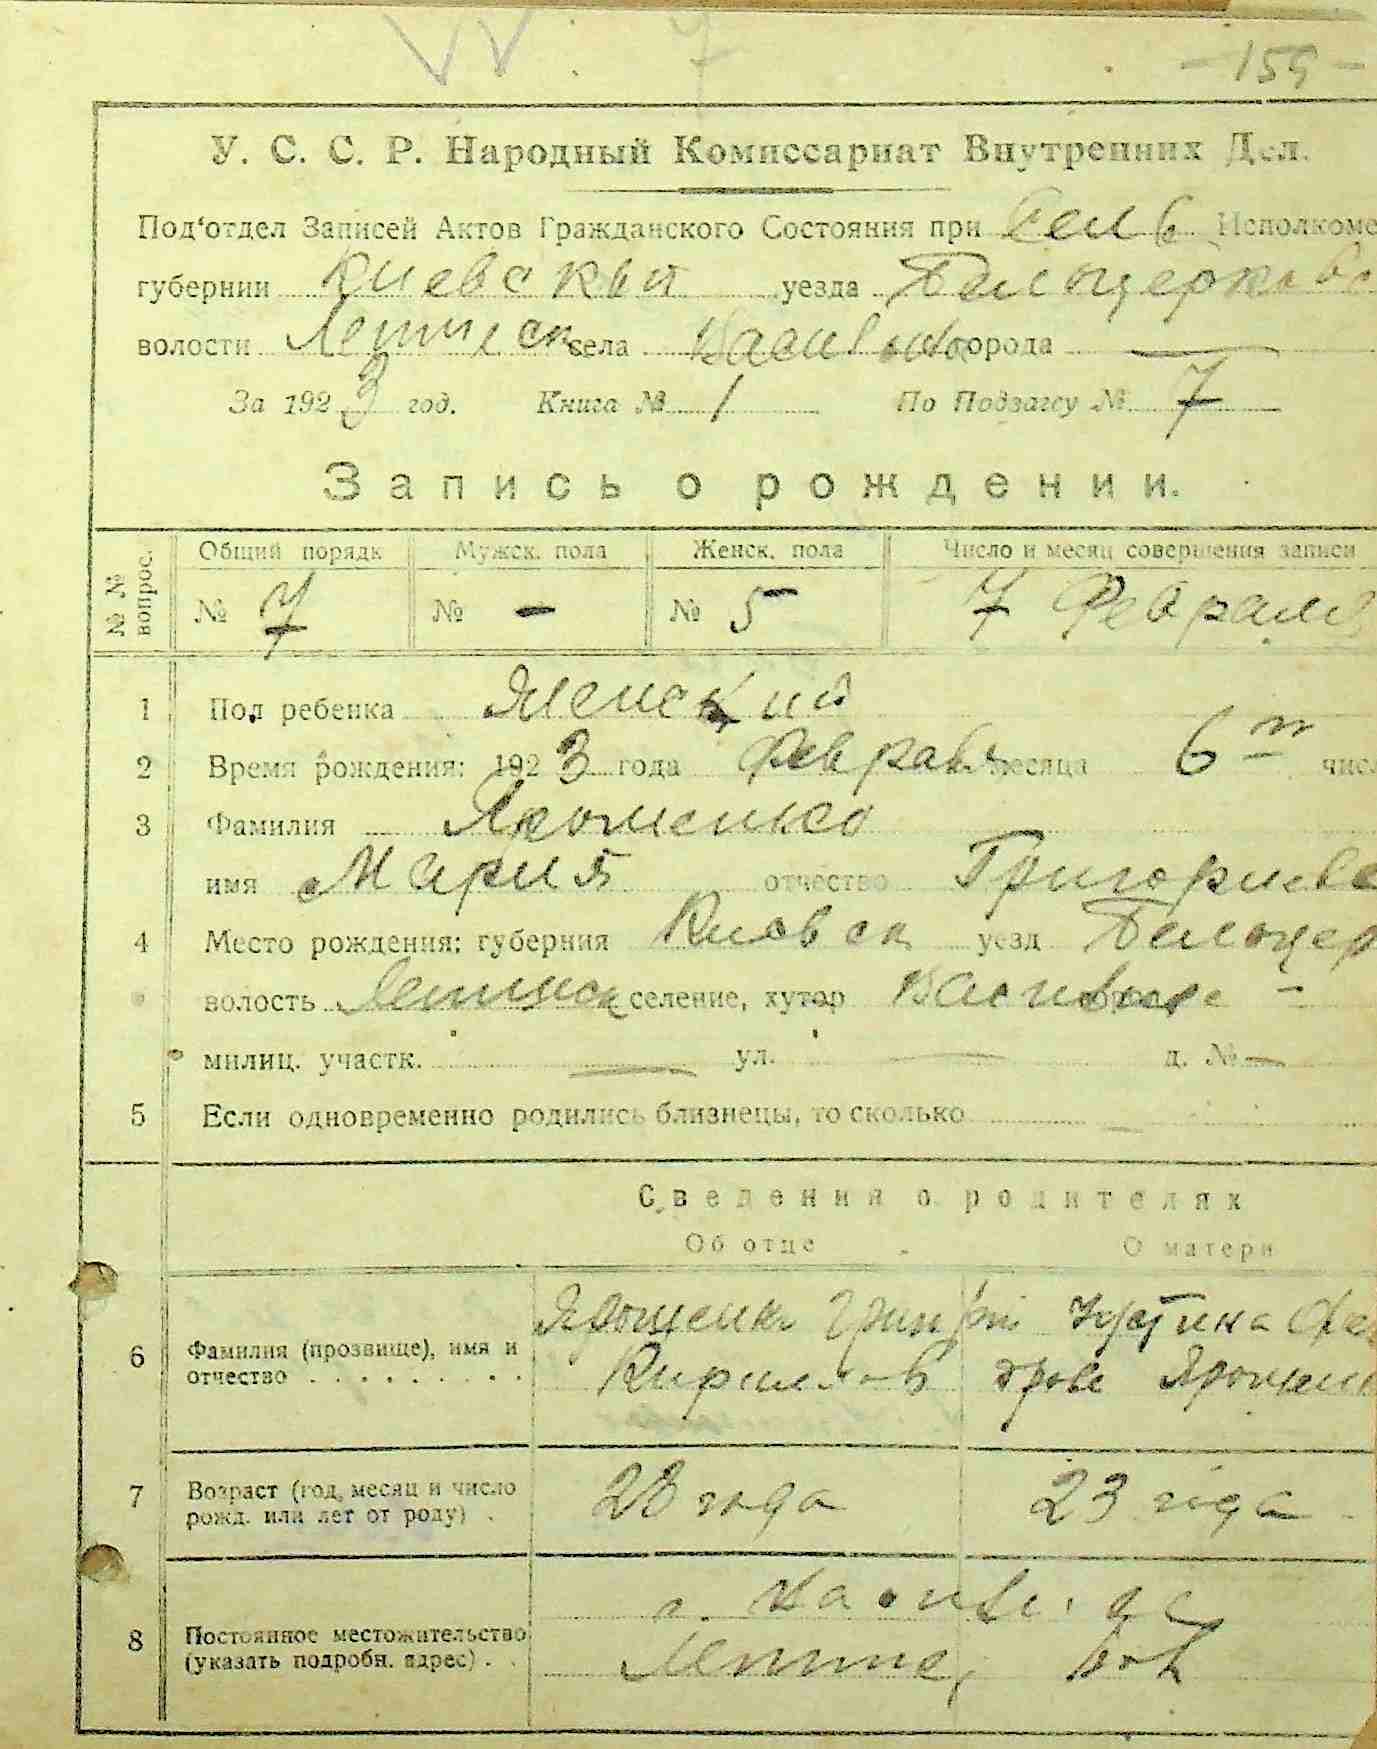 7
— 159 —
У. С. С. Р. Народный Комиссариат Внутренних Дел.
Под'отдел Записей Актов Гражданского Состояния при Сель Исполкоме
губернии Киевской уезда Белоцерков
волости села города —
За 1923 год. Книга № 1 По Подзагсу № 7
Запись о рождении.
№ № вопрос.
Общий порядк Мужск. пола Женск. пола Число и месяц совершения записи
№ 7 № — № 5 7 Февраля
1 Пол ребенка Женский
2 Время рождения: 1923 года Февраля месяца 6 числ
3 Фамилия Ярошенко
имя Мария отчество Григориев
4 Место рождения: губерния Киевск уезд Белоцер
волость селение, хутор —
милиц. участк. — ул. — д. № —
5 Если одновременно родились близнецы, то сколько —
Сведения о родителях
Об отце О матери
6 Фамилия (прозвище), имя и отчество . . . . . . . . . .
Ярошенко Григорий
Кирилов
Устина
Ярошенк
7 Возраст (год, месяц и число рожд. или лет от роду) .
28 года 23 года
8 Постоянное местожительство (указать подробн. адрес) . .
с.
вол